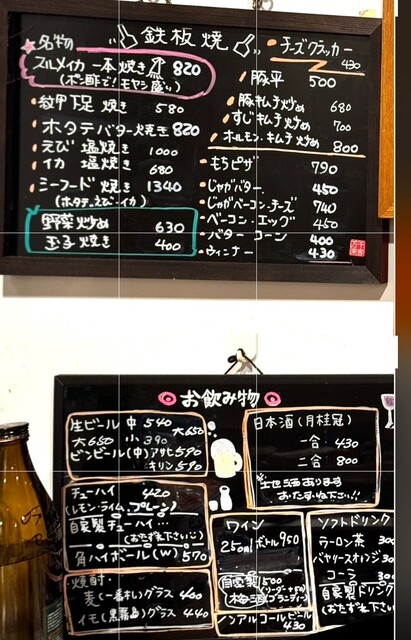 鉄板焼
名物
スルメイカ一本焼き 820
(ポン酢で!モヤシ盛り)
紋甲下足焼き 580
ホタテバター焼き 820
えび 塩焼き 1000
イカ 塩焼き 680
シーフード焼き 1340
(ホタテ、えび・イカ)
野菜炒め 630
玉子焼き 400
チーズクラッカー
430
豚平 500
豚キムチ炒め 680
すじキムチ炒め 700
ホルモン・キムチ炒め 800
もちピザ 790
じゃがバター 450
じゃがベーコン・チーズ 740
ベーコン・エッグ 450
バターコーン 400
ウィンナー 430
お飲み物
生ビール 中 540
大 650 小 390 大 650
ビンビール(中)アサヒ 590
キリン 590
チューハイ 420
(レモン・ライム・プレーン)
自家製チューハイ…
(おたずね下さい)
角ハイボール(W) 570
焼酎
麦(一番札)グラス 400
イモ(黒霧島)グラス 440
日本酒(月桂冠)
一合 430
二合 800
おたずね下さい!!
ワイン
250mlボトル 950
自家製 500
ノンアルコールビール
430
ソフトドリンク
ウーロン茶
バヤリースオレンジ
コーラ
自家製ドリンク
(おたずね下さい)